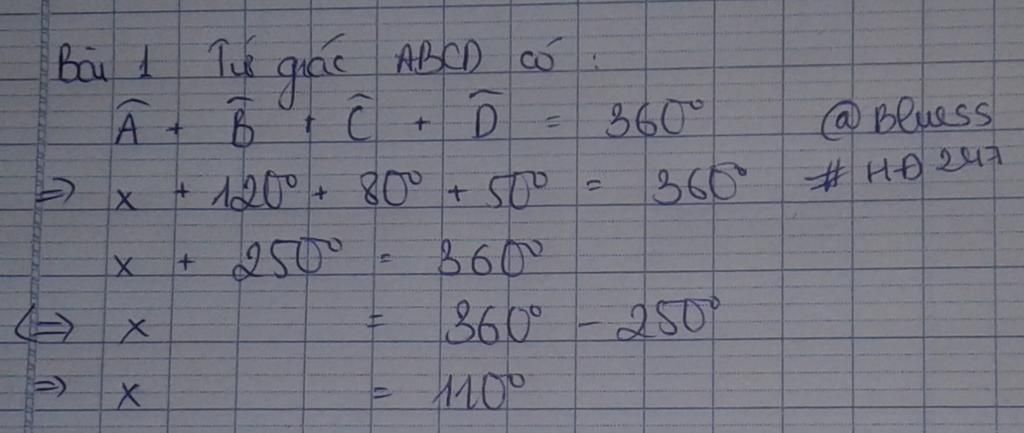 Bài 1 Tứ giác ABCD có :
Â + B̂ + Ĉ + D̂ = 360° @Bluess
⇒ x + 120° + 80° + 50° = 360° # HĐ 247
x + 250° = 360°
⇔ x = 360° - 250°
⇒ x = 110°